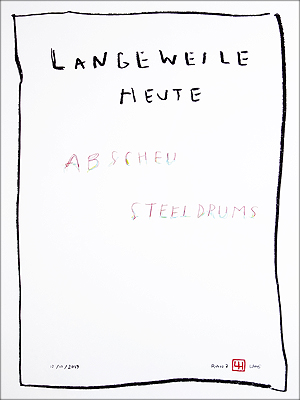 LANGEWEILE
HEUTE
ABSCHEU
STEELDRUMS